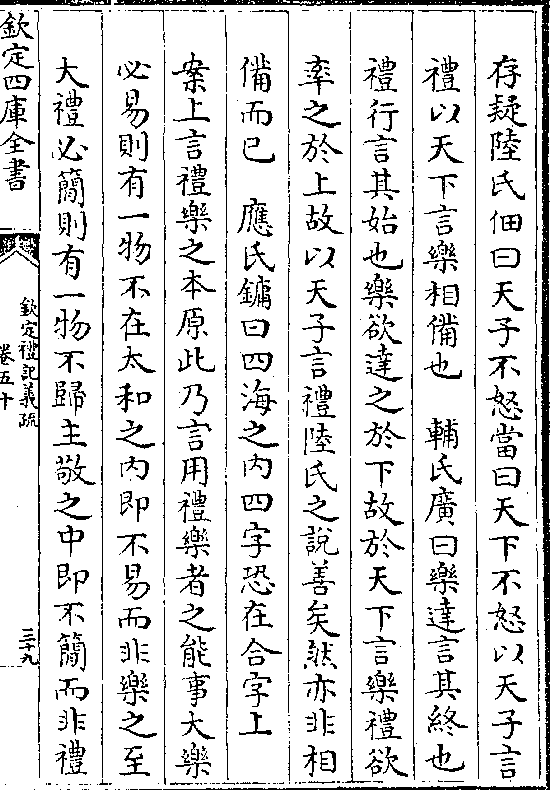 存疑陸氏佃曰天子不怒當曰天下不怒以天子言
禮以天下言樂相備也　輔氏廣曰樂達言其終也
禮行言其始也樂欲達之於下故於天下言樂禮欲
率之於上故以天子言禮陸氏之說善矣然亦非相
備而已　應氏鏞曰四海之内四字恐在合字上
案上言禮樂之本原此乃言用禮樂者之能事大樂
必易則有一物不在太和之内即不易而非樂之至
大禮必簡則有一物不歸主敬之中即不簡而非禮
欽定四庫全書
欽定禮記義疏
卷五十
三十九